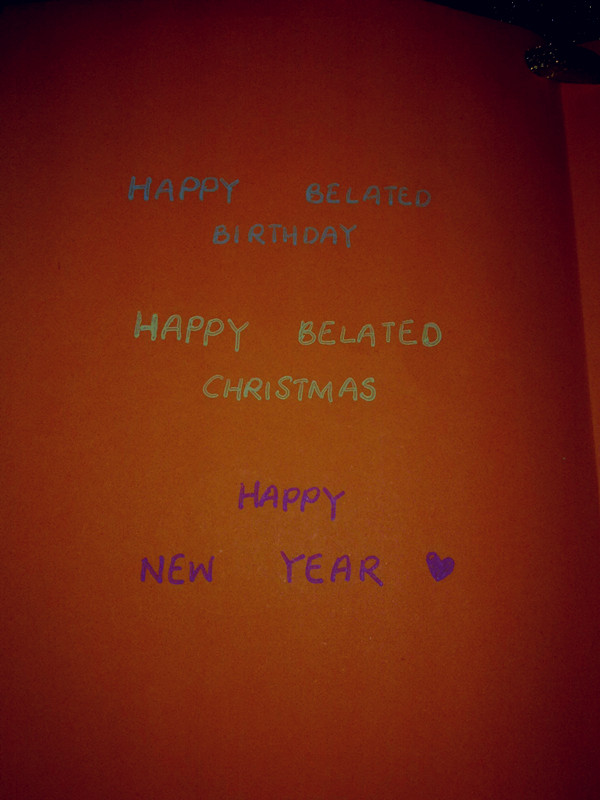 HAPPY BELATED
BIRTHDAY
HAPPY BELATED
CHRISTMAS
HAPPY
NEW YEAR ♥